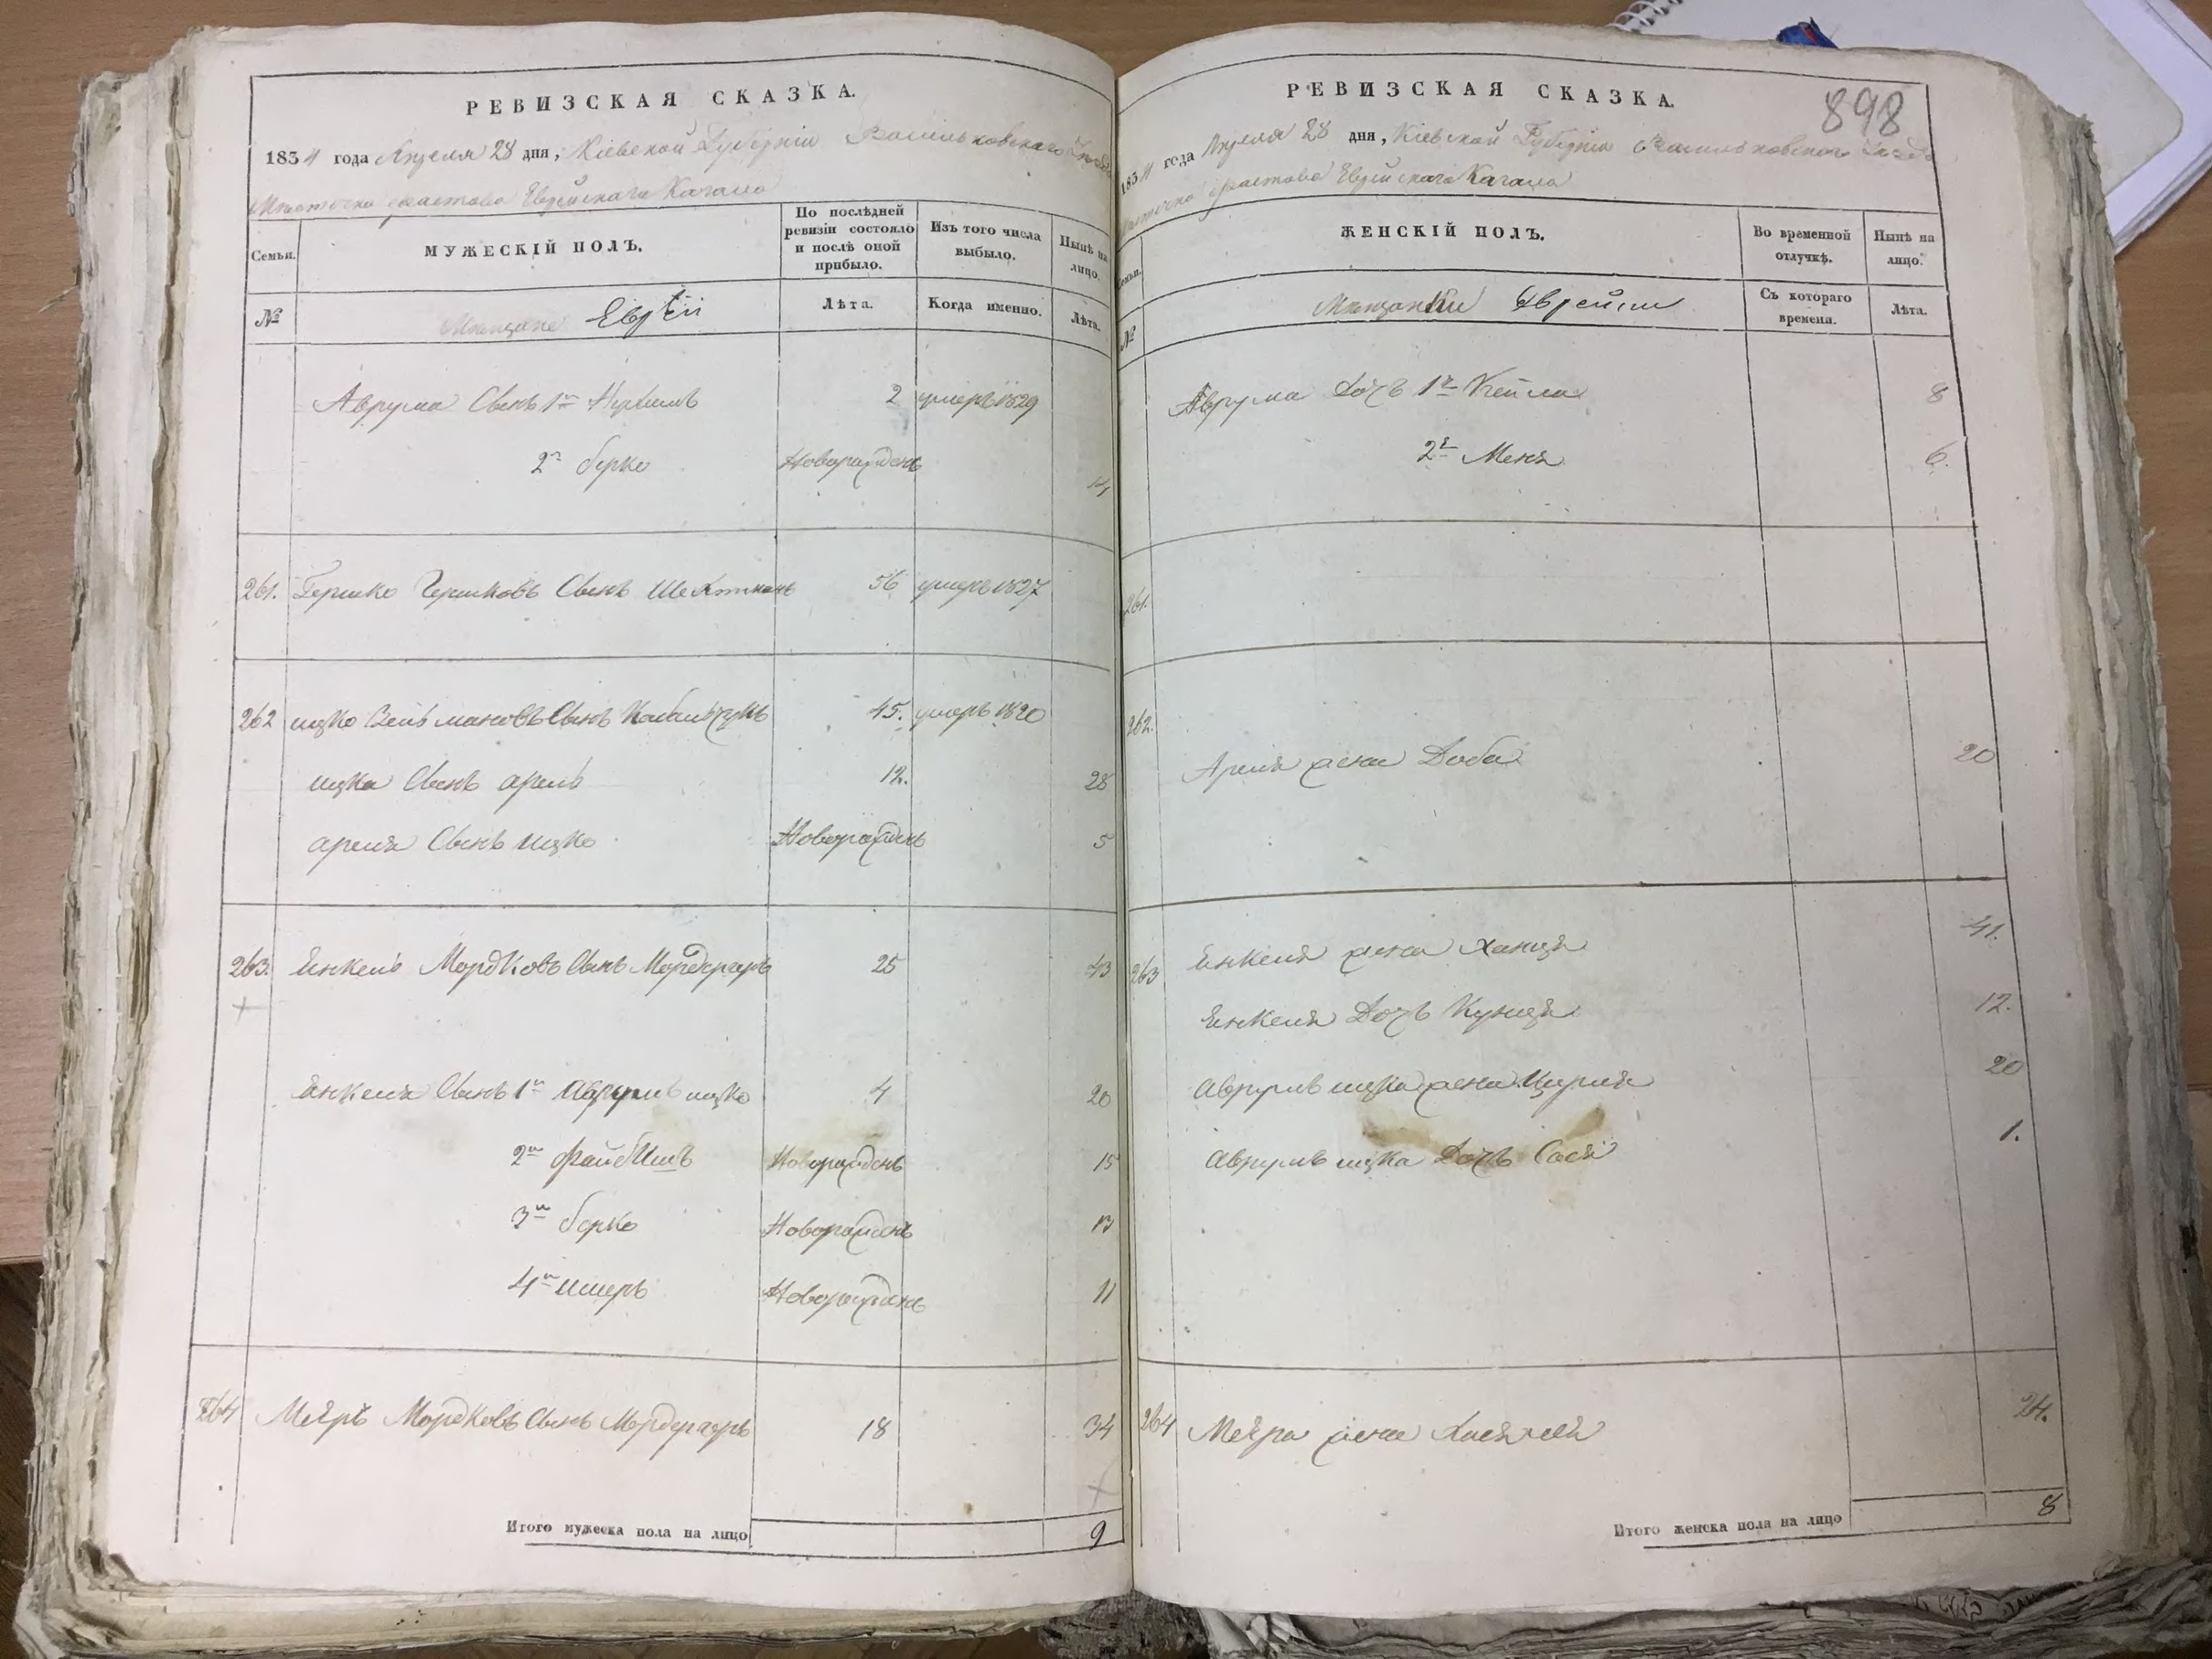 РЕВИЗСКАЯ СКАЗКА.
1834 года Апреля 28 дня, Кіевской Губерніи Васильковскаго Уезда
Местечка Фастова Еврейскаго Кагала
Семьи.
МУЖЕСКІЙ ПОЛЪ.
По послѣдней ревизіи состояло и послѣ оной прибыло.
Изъ того числа выбыло.
Нынѣ на лицо.
№
Мещане Евреи
Лѣта.
Когда именно.
Лѣта.
Аврума Сынъ 1й 2 умеръ 1829
2й Берко Новорожденъ 4
261. Гершко Гершковъ Сынъ Шехтманъ 56 умеръ 1827
262 ицко Сынъ 45. умеръ 1820
ицка Сынъ арель 12. 28
ареля Сынъ ицко Новорожденъ 5
263. Енкель Мордковъ Сынъ 25 43
Енкеля Сынъ 1й Аврумъ ицко 4 20
2й Файбишъ Новорожденъ 15
3й Берко Новорожденъ 13
4й Новорожденъ 11
264 Меяръ Мордковъ Сынъ 18 34
Итого мужеска пола на лицо 9
898
РЕВИЗСКАЯ СКАЗКА.
1834 года Апреля 28 дня, Кіевской Губерніи Васильковского Уезда
Местечка Фастова Еврейскаго Кагала
Семьи.
ЖЕНСКІЙ ПОЛЪ.
Во временной отлучкѣ.
Нынѣ на лицо.
№
Мещанки Еврейки
Съ котораго времени.
Лѣта.
Аврума Дочь 1я Кейла 8
2я Меня 6.
261.
262.
Ареля жена Доба 20
263 Енкеля жена Ханця 41.
Енкеля Дочь Куня 12.
Аврумъ ицка жена Цирля 20
Аврумъ ицка Дочь Сося 1.
264 Меяра жена 24.
Итого женска пола на лицо 8